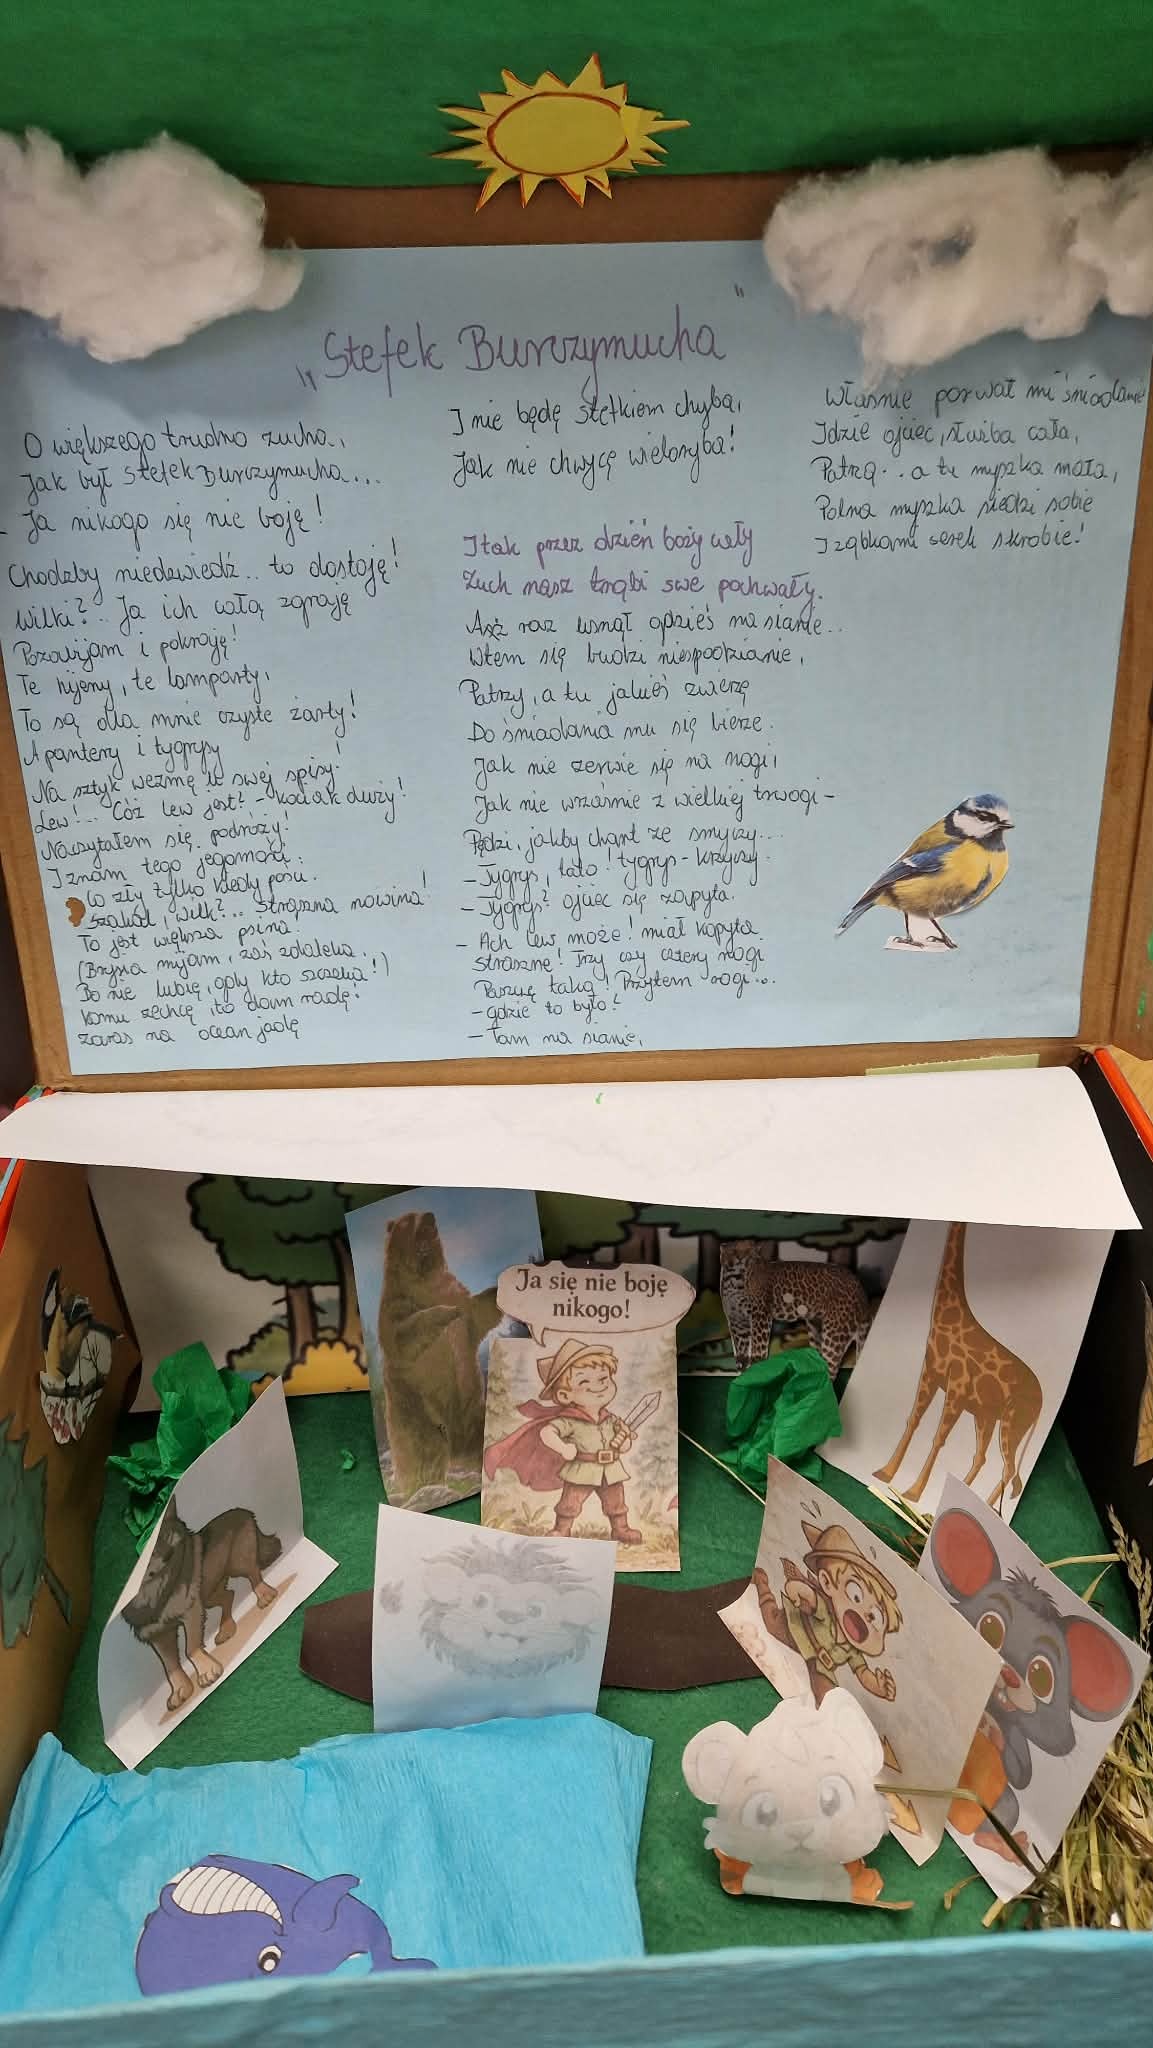 „Stefek Burczymucha"
O większego trudno zucha,
Jak był Stefek Burczymucha...
- Ja nikogo się nie boję!
Chodzby niedzwiedź.. to dostoję!
Wilki?.. Ja ich całą zgraję
Pozabijam i pokroję!
Te hijeny, te lamparty,
To są dla mnie czyste żarty!
A pantery i tygrysy
Na sztyk wezmę u swej spisy!
Lew!... Cóż lew jest? - kociak duży!
Naczytałem się podróży!
I znam tego jegomości:
Co zły tylko kiedy pości.
Szakal, Wilk?.. Straszna nowina!
To jest większa psina.
(Brysia mijam, zaś zdaleka.
Bo nie lubię, gdy kto szczeka!)
Komu zechcę, to dam radę!
zaraz na ocean jadę
I nie będę Stefkiem chyba,
Jak nie chwycę wieloryba!
I tak przez dzień boży cały
Zuch nasz trąbi swe pochwały.
Aż raz usnął gdzieś na sianie...
Wtem się budzi niespodzianie,
Patrzy, a tu jakieś zwierzę
Do śniadania mu się bierze.
Jak nie zerwie się na nogi,
Jak nie wrzaśnie z wielkiej trwogi -
Pędzi, jakby chart ze smyczy...
- Tygrys, tato! tygrys - krzyczy.
- Tygrys? ojciec się zapyta.
- Ach lew może! miał kopyta
Straszne! Trzy czy cztery nogi
Paszczę taką! Przytem rogi...
- Gdzie to było?
- Tam na sianie,
Właśnie porwał mi śniadanie
Idzie ojciec, służba cała,
Patrzą.. a tu myszka mała,
Polna myszka siedzi sobie
I ząbkami serek skrobie!
Ja się nie boję
nikogo!